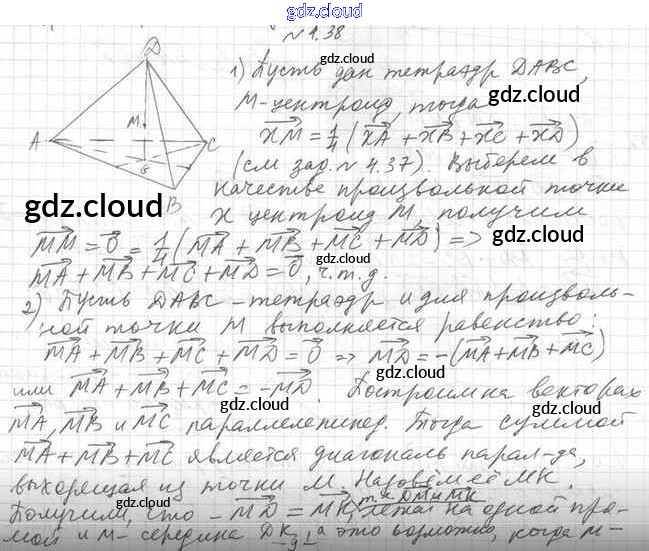 gdz.cloud
№ 4.38
1) Пусть дан тетраэдр DABC,
M-центроид, тогда
XM = 1/4 (XA + XB + XC + XD)
(см зад. № 4.37) Выберем в
качестве произвольной точки
X центроид M, получим
MM = 0 = 1/4 (MA + MB + MC + MD) =>
MA + MB + MC + MD = 0, ч.т.д.
2) Пусть DABC - тетраэдр и для произволь-
ной точки M выполняется равенство:
MA + MB + MC + MD = 0 => MD = -(MA + MB + MC)
или MA + MB + MC = -MD. Построим на векторах
MA, MB и MC параллелепипед. Тогда суммой
MA + MB + MC является диагональ парал-да,
выходящая из точки M. Назовём её MK.
Получим, что -MD = MK, т.к. DM и MK лежат на одной пря-
мой и M- середина DK, а это возможно, когда M-
D
M
A
C
G
B
gdz.cloud
gdz.cloud
gdz.cloud
gdz.cloud
gdz.cloud
gdz.cloud
gdz.cloud
gdz.cloud
gdz.cloud
gdz.cloud
gdz.cloud
gdz.cloud